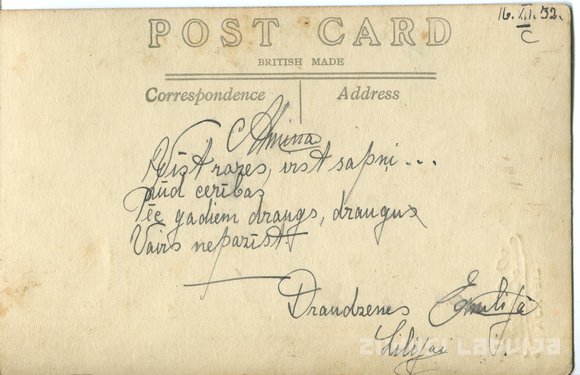 16. XII. 32.
C
POST CARD
BRITISH MADE
Correspondence
Address
Atmiņa
Vīst rozes, irst sapņi...
gūd cerības
Pēc gadiem draugs, draugus
Vairs nepazīst
Draudzenes Emilija
Lilijai
zudusi Latvija